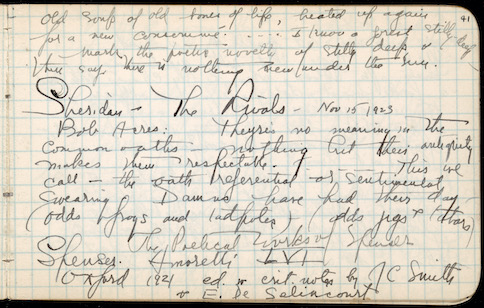 old soup of old bones of life, heated up again 41
for a new consommé. .... I know a great stilly deep
Mark, the poetic novelty of stilly deep &
then say there is nothing new under the sun.
Sheridan - The Rivals - Nov 15 1923
Bob Acres: There's no meaning in the
common oaths - nothing but their antiquity
makes them respectable. - This we
call - the oath referential - or sentimental
swearing Damns have had their day -
(odds frogs and tadpoles - odds jigs & tabors)
Spenser. The Poetical Works of Spenser
Amoretti LVI
Oxford 1921 ed. w crit. notes by J C Smith
& E. De Selincourt